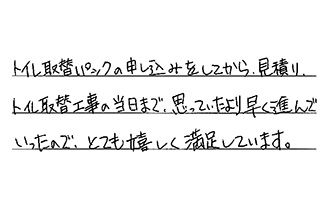 トイレ取替パックの申し込みをしてから、見積り、
トイレ取替工事の当日まで、思っていたより早く進んで
いったので、とても嬉しく満足しています。